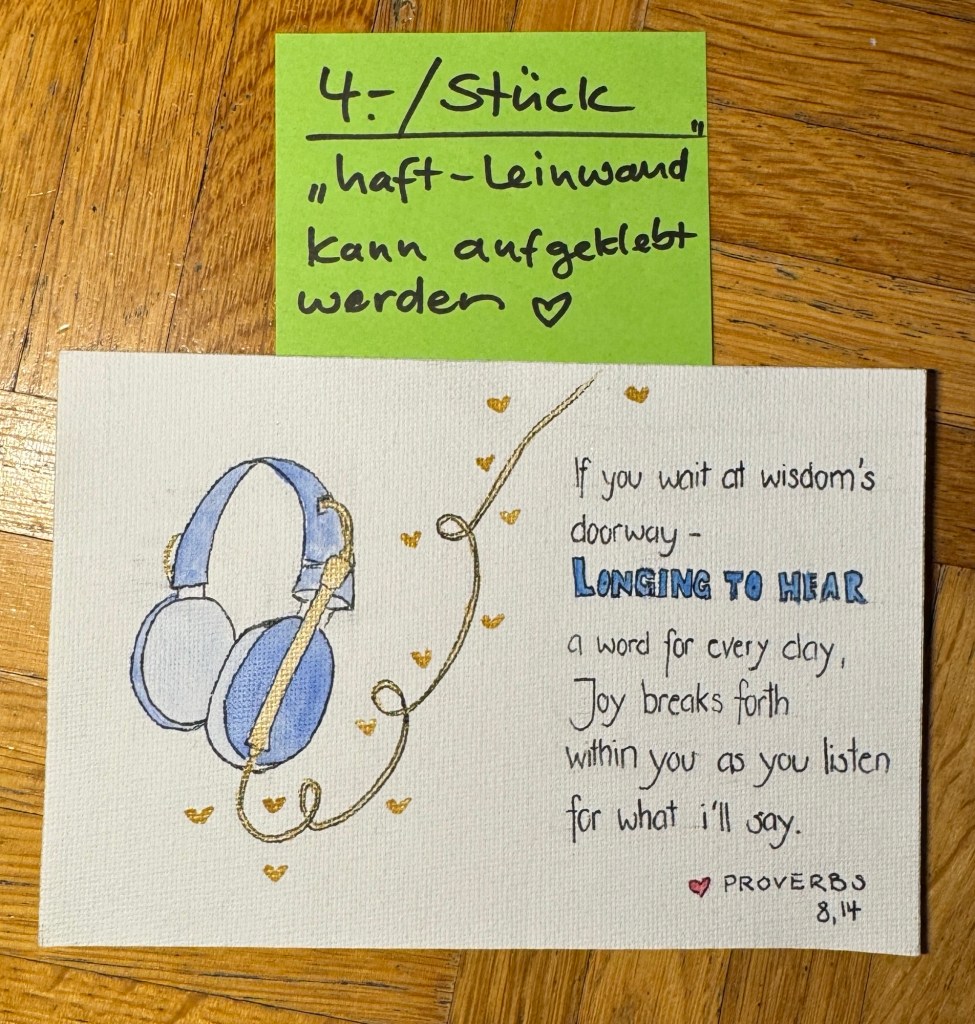 4.-/Stück
„haft-Leinwand"
kann aufgeklebt
werden ♡
If you wait at wisdom's
doorway -
LONGING TO HEAR
a word for every day,
Joy breaks forth
within you as you listen
for what i'll say.
♥ PROVERBS
8,14